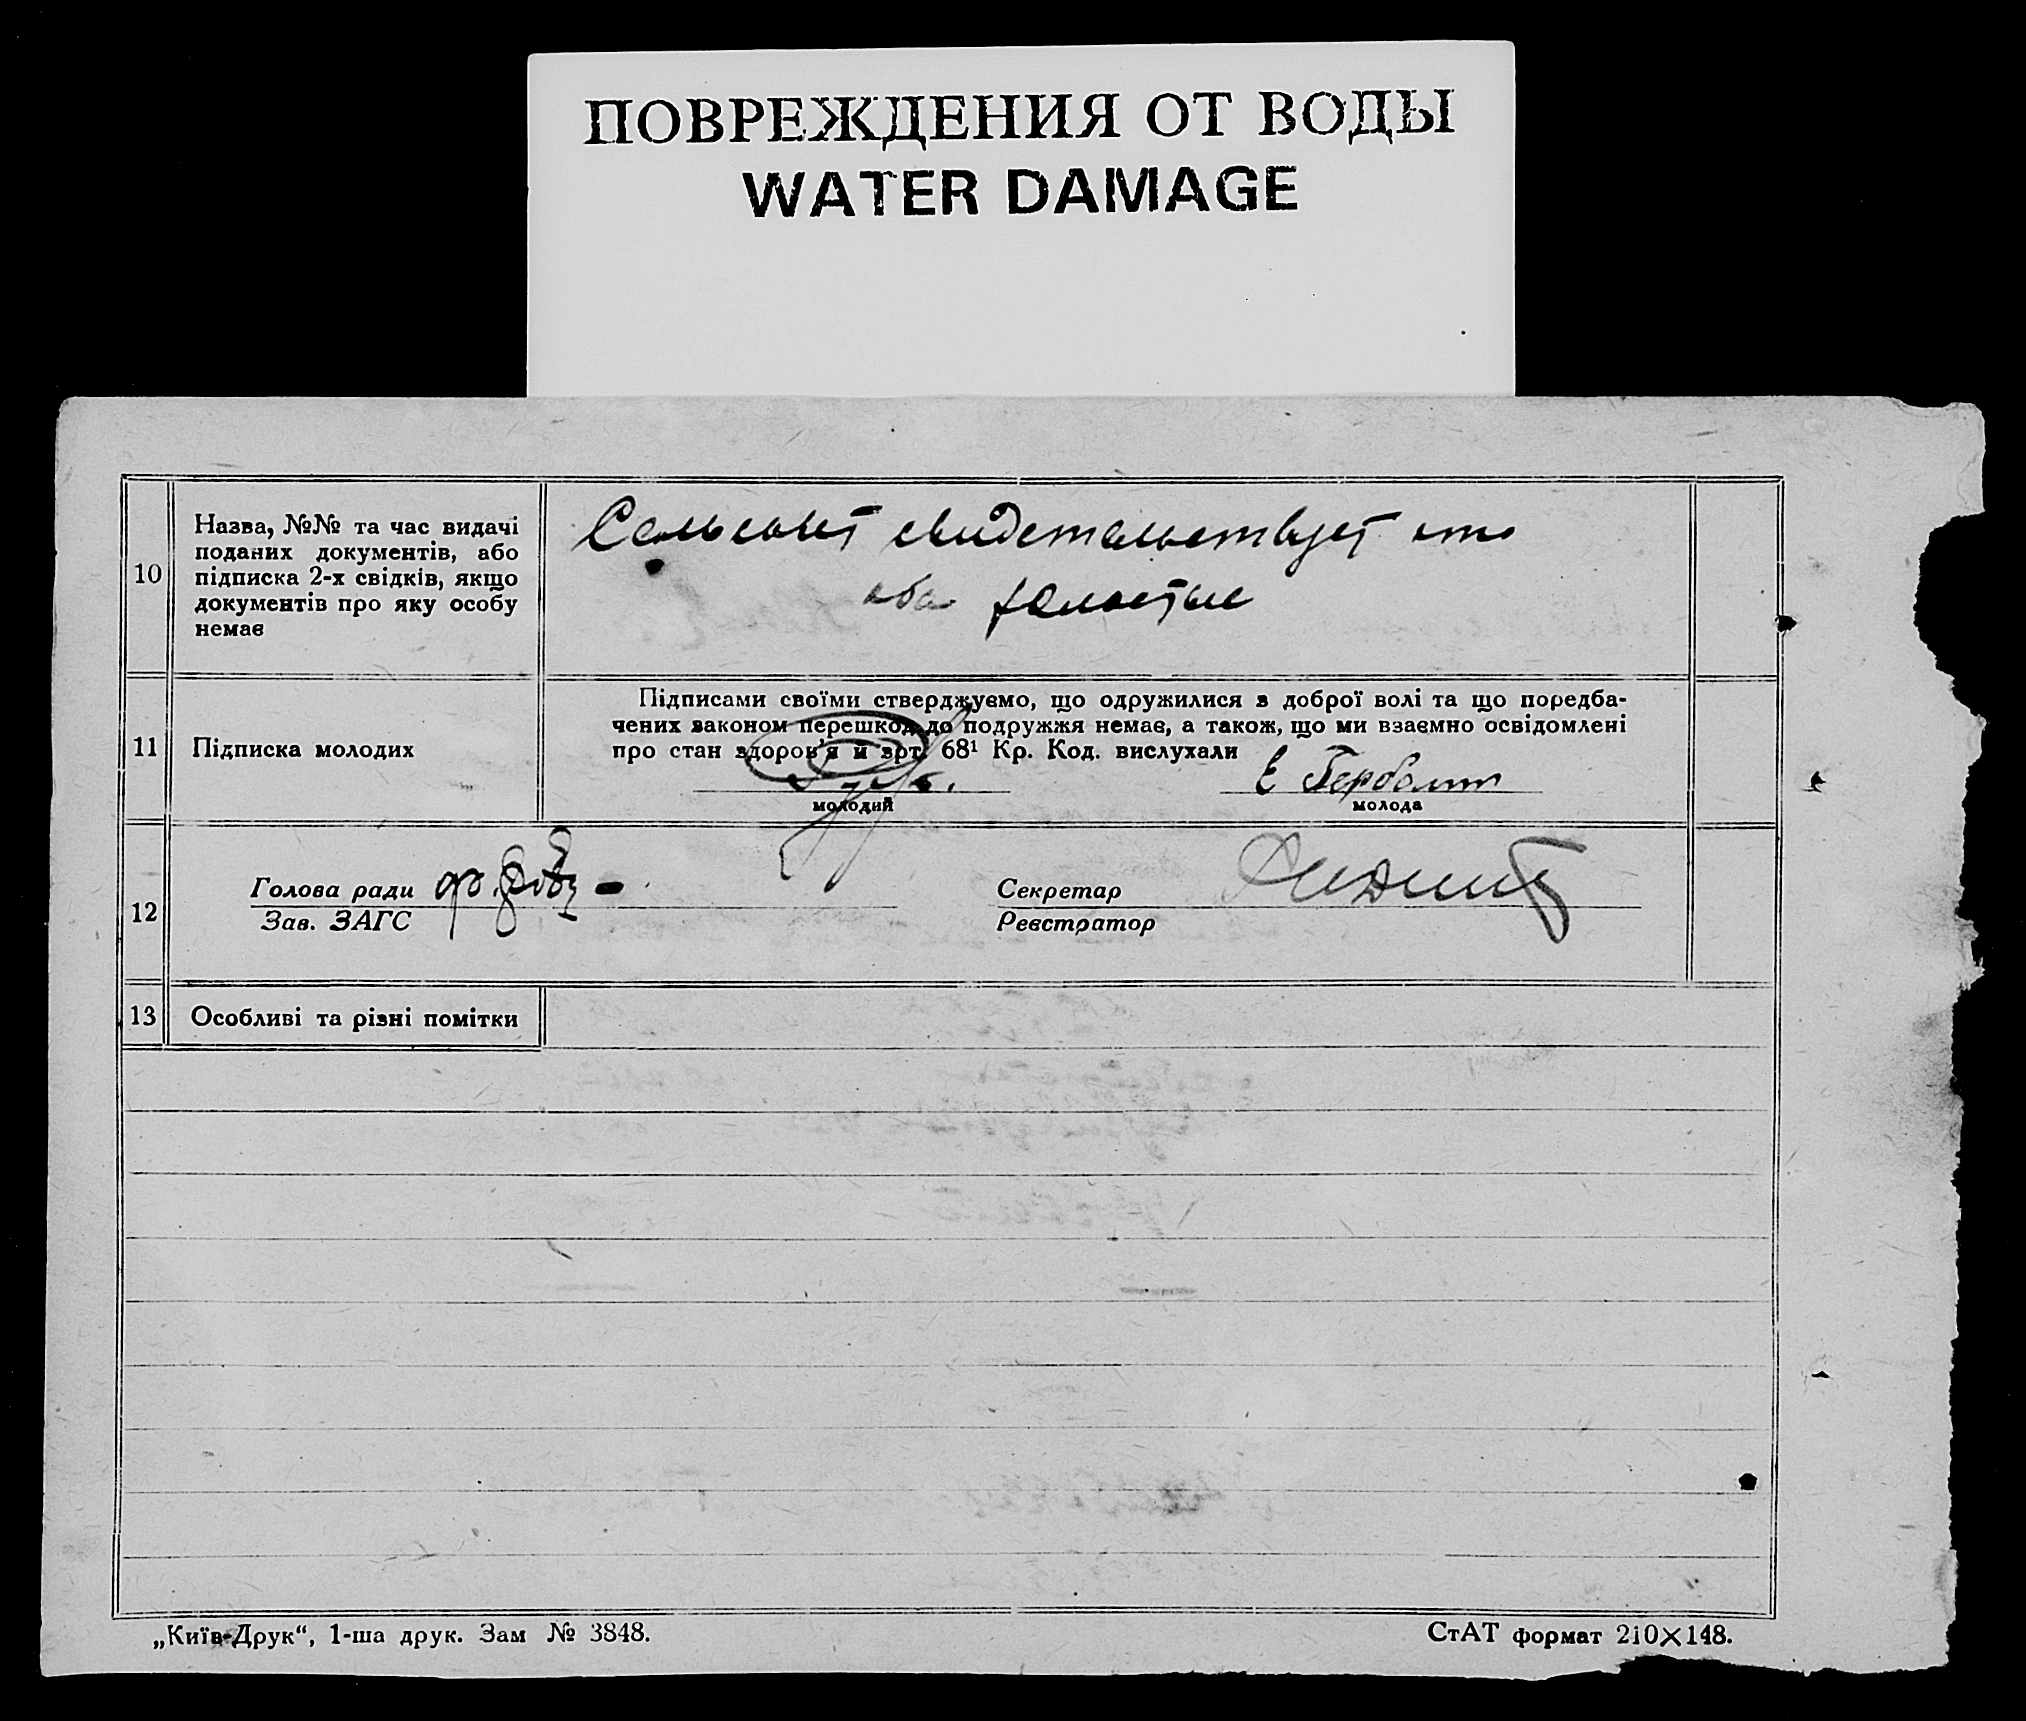 ПОВРЕЖДЕНИЯ ОТ ВОДЫ
WATER DAMAGE
10
Назва, №№ та час видачі
поданих документів, або
підписка 2-х свідків, якщо
документів про яку особу
немає
Сельсовет свидетельствует что
оба холостые
11
Підписка молодих
Підписами своїми стверджуємо, що одружилися з доброї волі та що поредба-
чених законом перешкод до подружжя немає, а також, що ми взаємно освідомлені
про стан здоров'я й арт. 68¹ Кр. Код. вислухали
Е Герболит
молодий
молода
12
Голова ради
Зав. ЗАГС
Секретар
Реєстратор
13
Особливі та різні помітки
„Київ-Друк“, 1-ша друк. Зам № 3848.
СтАТ формат 210×148.